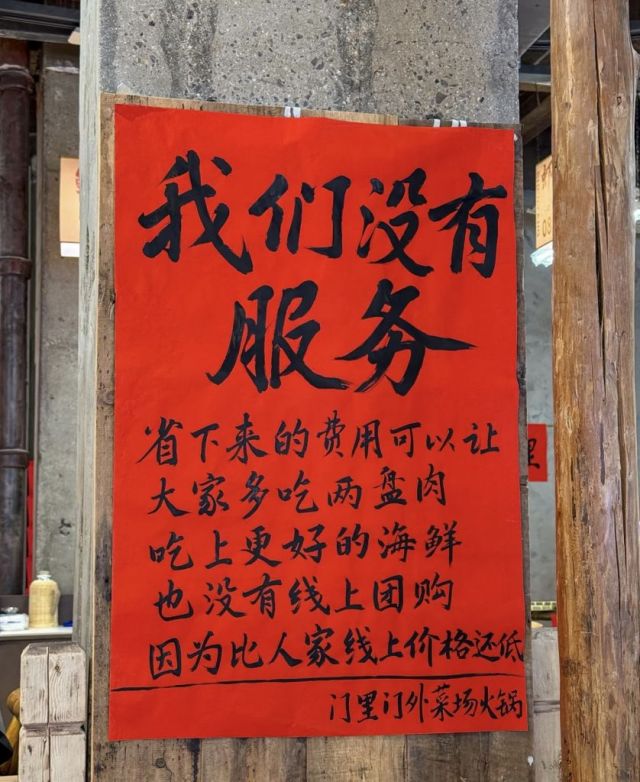 我们没有
服务
省下来的费用可以让
大家多吃两盘肉
吃上更好的海鲜
也没有线上团购
因为比人家线上价格还低
门里门外菜场火锅